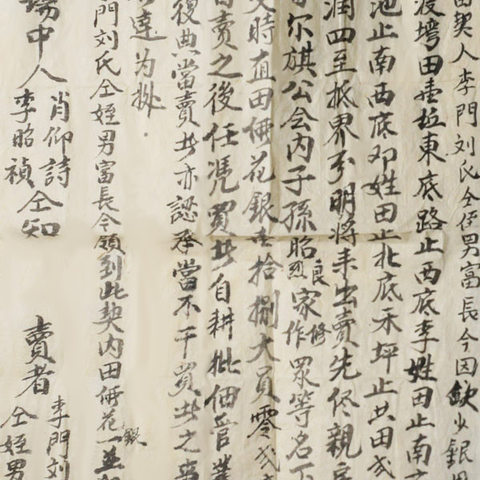 契人李門刘氏仝侄男富長今因欽少銀用
渡塝田壹坵東底路止西底李姓田止南
池止南西底邓姓田止北底禾坪止共田弍
四至抵界分明将来出賣先侭親房
尔旗公会内子孫昭烈良家作修眾等名下
時直田価花銀壱拾捌大員零弍
賣之後任凭買者自耕批佃管業
復典當賣者亦認承當不干買者之事
違为
門刘氏仝姪男富長今領到此契内田価花銀一並
場中人 肖仰詩 李昭禎 仝知
賣者 李門刘 仝姪男